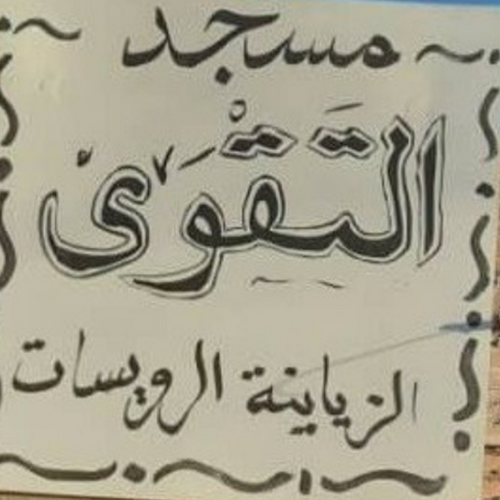 مسجد
التقوى
الزباينة الرويسات